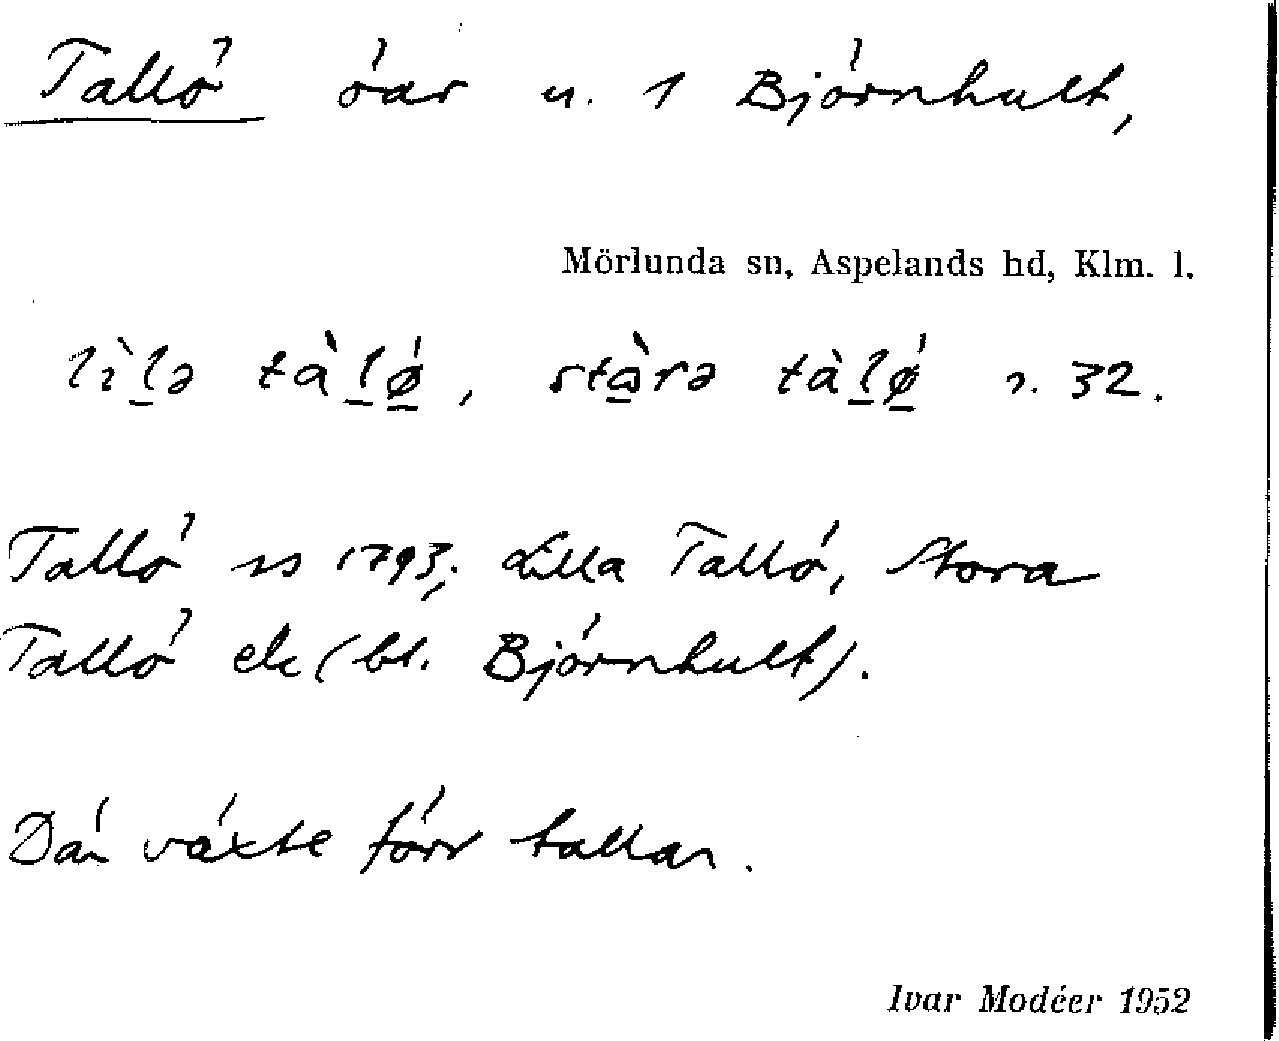 Tallö öar u. 1 Björnhult,
Mörlunda sn, Aspelands hd, Klm. l.
lìlə tàlǿ, stàrə tàlǿ 32.
Tallö ss 1793; Lilla Tallö, Stora
Tallö ek (bl. Björnhult).
Där växte förr tallar.
Ivar Modéer 1952